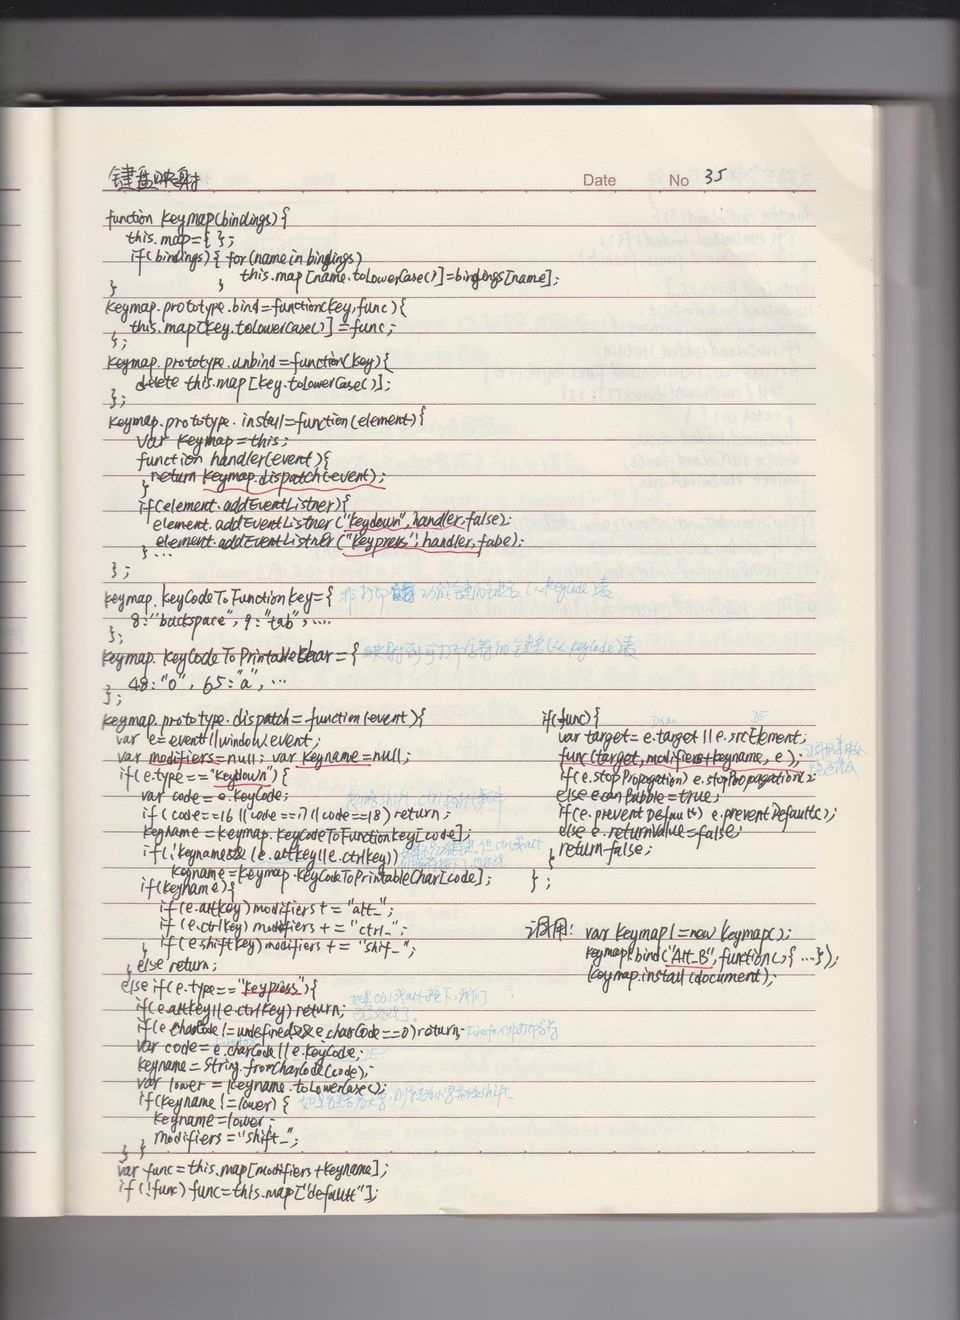 键盘映射
Date No 35
function keymap(bindings){
this.map={ };
if(bindings){ for(name in bindings)
this.map[name.toLowerCase()]=bindings[name];
} }
keymap.prototype.bind=function(key,func){
this.map[key.toLowerCase()]=func;
};
keymap.prototype.unbind=function(key){
delete this.map[key.toLowerCase()];
};
keymap.prototype.install=function(element){
var keymap=this;
function handler(event){
return keymap.dispatch(event);
}
if(element.addEventListner){
element.addEventListner("keydown",handler,false);
element.addEventListner("keypress",handler,false);
} ...
};
keymap.keyCodeToFunctionKey={
8:"backspace", 9:"tab", ....
};
keymap.keyCodeToPrintableChar={
48:"0", 65:"a", ...
};
keymap.prototype.dispatch=function(event){
var e=event||window.event;
var modifiers=null; var keyname=null;
if(e.type=="keydown"){
var code=e.keyCode;
if(code==16||code==17||code==18)return;
keyname=keymap.keyCodeToFunctionKey[code];
if(!keyname&&(e.altkey||e.ctrlkey))
keyname=keymap.keyCodeToPrintableChar[code];
if(keyname){
if(e.altkey)modifiers+="alt_";
if(e.ctrlkey)modifiers+="ctrl_";
if(e.shiftkey)modifiers+="shif_";
}
else return;
}
else if(e.type=="keypress"){
if(e.altkey||e.ctrlkey)return;
if(e.charCode!=undefined&&e.charCode==0)return;
var code=e.charCode||e.keyCode;
keyname=String.fromCharCode(code);
var lower=keyname.toLowerCase();
if(keyname!=lower){
keyname=lower;
modifiers="shift_";
} }
var func=this.map[modifiers+keyname];
if(!func)func=this.map["default"];
if(func){
var target=e.target||e.srcElement;
func(target,modifiers+keyname,e);
if(e.stopPropagation)e.stopPropagation();
else e.canBubble=true;
if(e.preventDefault)e.preventDefault();
else e.returnValue=false;
return false;
}
};
调用: var keymap1=new keymap();
keymap1.bind("Alt_B",function(){...});
keymap.install(document);